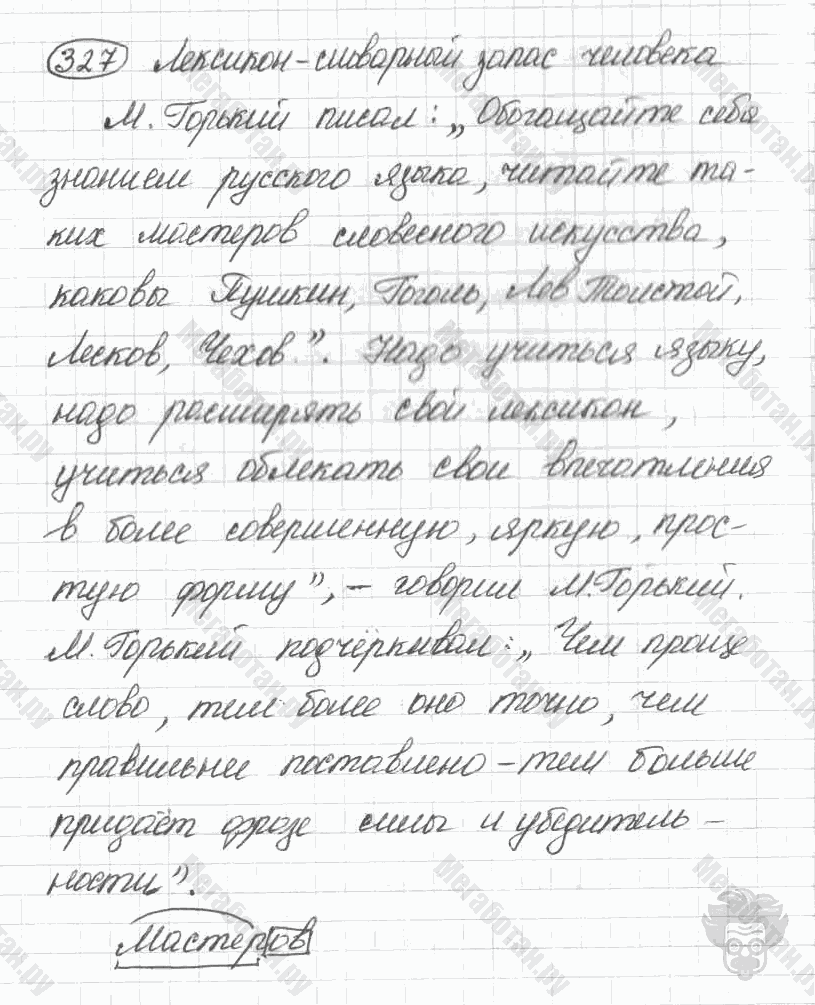 327 Лексикон – словарный запас человека
М. Горький писал: „Обогащайте себя
знанием русского языка, читайте та-
ких мастеров словесного искусства,
каковы Пушкин, Гоголь, Лев Толстой,
Лесков, Чехов". Надо учиться языку,
надо расширять свой лексикон,
учиться облекать свои впечатления
в более совершенную, яркую, прос-
тую форму", – говорил М. Горький.
М. Горький подчёркивал: „Чем проще
слово, тем более оно точно, чем
правильнее поставлено – тем больше
придаёт фразе силы и убедитель-
ности".
Мастеров
Мегаботан.ру